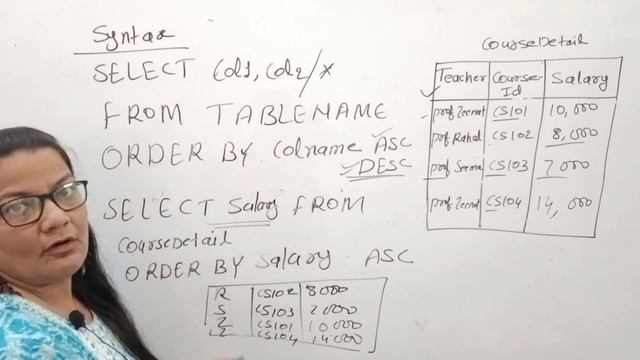 Syntax
SELECT Col1, Col2/*
FROM TABLENAME
ORDER BY Colname ASC
DESC
SELECT Salary FROM
CourseDetail
ORDER BY Salary ASC
R CS102 8000
S CS103 7000
Z CS101 10000
Z CS104 14000
CourseDetail
Teacher Course Id Salary
Prof Zeenat CS101 10,000
Prof Rahal CS102 8,000
Prof Seema CS103 7000
Prof Zeenat CS104 14,000